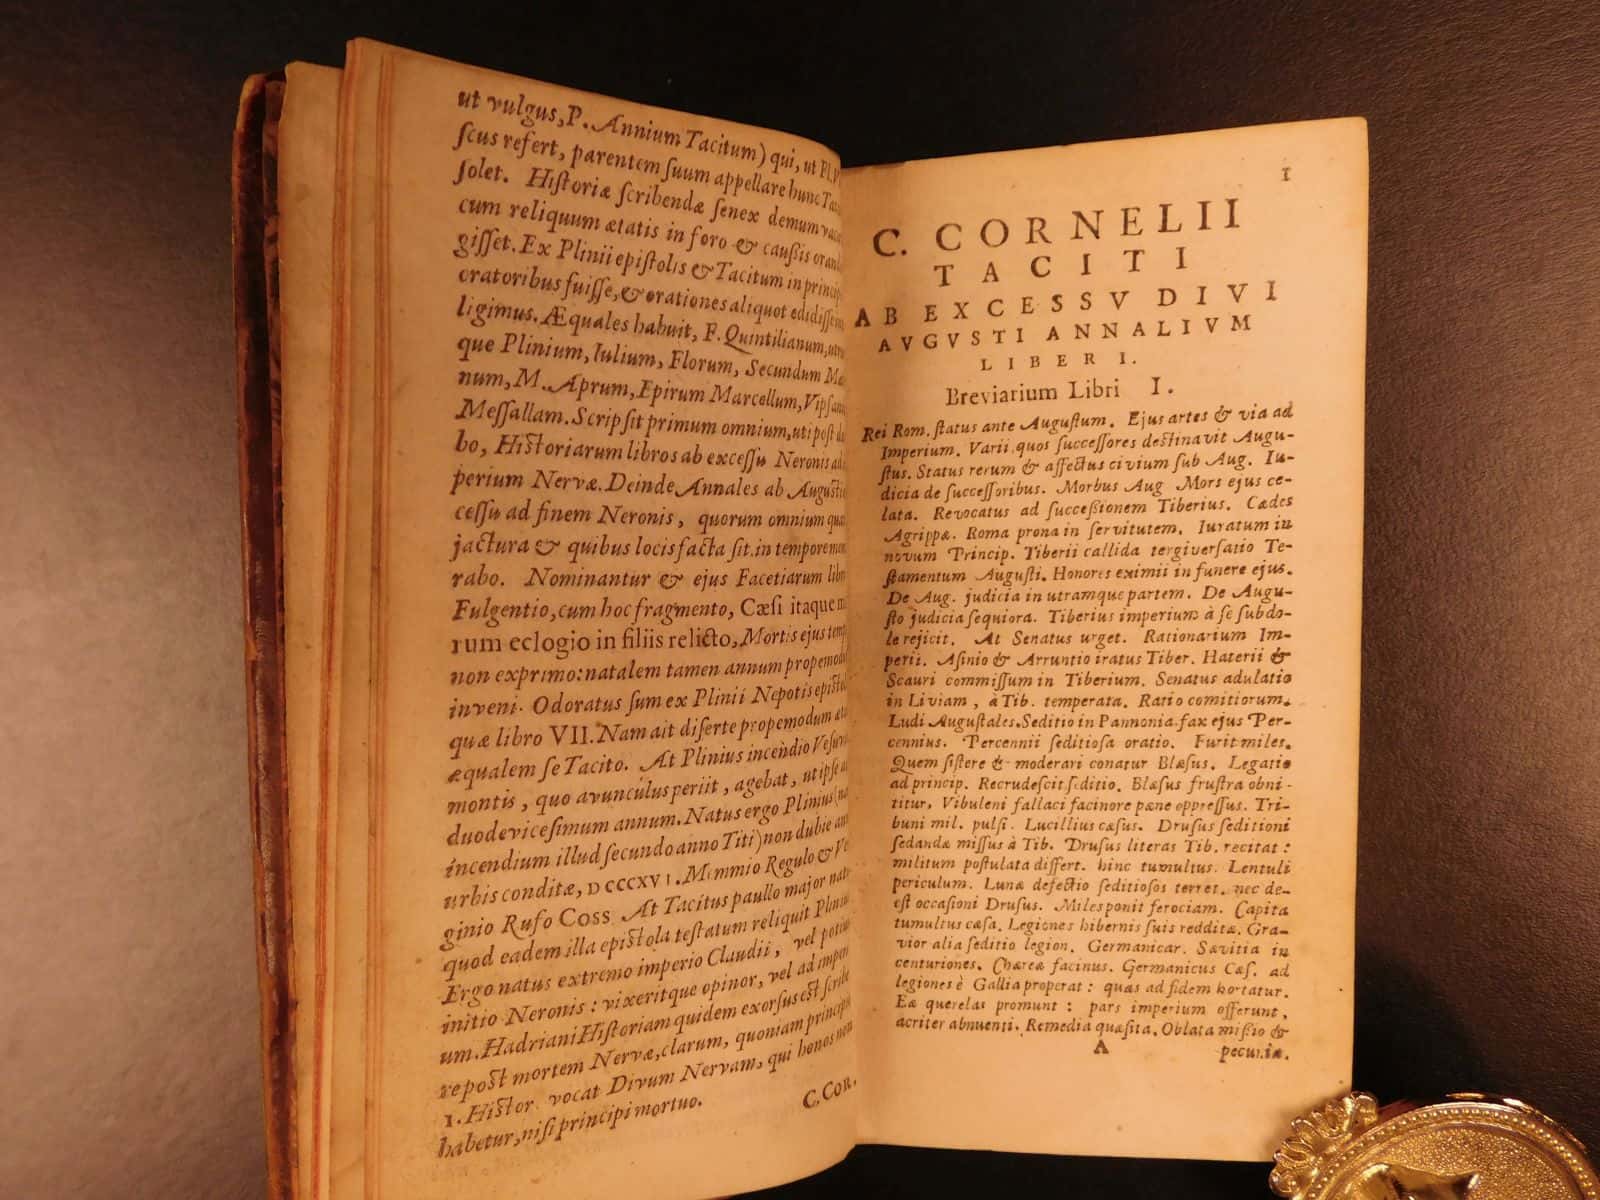 ut vulgus, P. Annium Tacitum) qui, ut Pl.
ſcus refert, parentem ſuum appellare hunc
ſolet. Hiſtoriæ ſcribendæ ſenex demum
cum reliquum ætatis in foro & cauſſis
giſſet. Ex Plinii epiſtolis & Tacitum in
oratoribus fuiſſe, & orationes aliquot
ligimus. Æquales habuit, F. Quintilianum,
que Plinium, Iulium, Florum, Secundum
num, M. Aprum, Epirum Marcellum,
Meſſallam. Scripſit primum omnium, uti poſt
bo, Hiſtoriarum libros ab exceſſu Neronis
perium Nervæ. Deinde Annales ab
ceſſu ad finem Neronis, quorum omnium
jactura & quibus locis facta ſit, in tempore
rabo. Nominantur & ejus Facetiarum
Fulgentio, cum hoc fragmento, Cæſi itaque
rum eclogio in filiis relicto, Mortis ejus
non exprimo: natalem tamen annum
inveni. Odoratus ſum ex Plinii Nepotis
quæ libro VII. Nam ait diſerte propemodum
æqualem ſe Tacito. At Plinius incendio
montis, quo avunculus periit, agebat, ut ipſe
duodeviceſimum annum. Natus ergo Plinius
incendium illud ſecundo anno Titi) non dubie
urbis conditæ, DCCCXVI. Memmio Regulo &
ginio Rufo Coss At Tacitus paullo major
quod eadem illa epiſtola teſtatum reliquit
Ergo natus extremo imperio Claudii, vel
initio Neronis: vixeritque opinor, vel ad
um. Hadriani Hiſtoriam quidem exorſus eſt
repoſt mortem Nervæ, clarum, quoniam
1. Hiſtor. vocat Divum Nervam, qui honos
habetur, niſi principi mortuo.
C. COR.
1
C. CORNELII
TACITI
AB EXCESSV DIVI
AVGVSTI ANNALIVM
LIBER I.
Breviarium Libri I.
Rei Rom. ſtatus ante Auguſtum. Ejus artes & via ad
Imperium. Varii, quos ſucceſſores deſtinavit Augu-
ſtus. Status rerum & affectus civium ſub Aug. Iu-
dicia de ſucceſſoribus. Morbus Aug Mors ejus ce-
lata. Revocatus ad ſucceſſionem Tiberius. Cædes
Agrippæ. Roma prona in ſervitutem. Iuratum in
novum Princip. Tiberii callida tergiverſatio Te-
ſtamentum Auguſti. Honores eximii in funere ejus.
De Aug. judicia in utramque partem. De Augu-
ſto judicia ſequiora. Tiberius imperium à ſe ſubdo-
le rejicit. At Senatus urget. Rationarium Im-
perii. Aſinio & Arruntio iratus Tiber. Haterii &
Scauri commiſſum in Tiberium. Senatus adulatio
in Liviam, à Tib. temperata. Ratio comitiorum.
Ludi Auguſtales. Seditio in Pannonia. fax ejus Per-
cennius. Percennii ſeditioſa oratio. Furit miles.
Quem ſiſtere & moderari conatur Blæſus. Legatio
ad princip. Recrudeſcit ſeditio. Blæſus fruſtra obni-
titur, Vibuleni fallaci facinore pæne oppreſſus. Tri-
buni mil. pulſi. Lucillius cæſus. Druſus ſeditioni
ſedandæ miſſus à Tib. Druſus literas Tib. recitat:
militum poſtulata differt. hinc tumultus. Lentuli
periculum. Lunæ defectio ſeditioſos terret. nec de-
eſt occaſioni Druſus. Miles ponit ferociam. Capita
tumultus cæſa. Legiones hibernis ſuis redditæ. Gra-
vior alia ſeditio legion. Germanicar. Sævitia in
centuriones. Chæreæ facinus. Germanicus Cæſ. ad
legiones è Gallia properat: quas ad fidem hortatur.
Eæ querelas promunt: pars imperium offerunt,
acriter abnuenti. Remedia quæſita. Oblata miſſio &
A
pecuniæ.